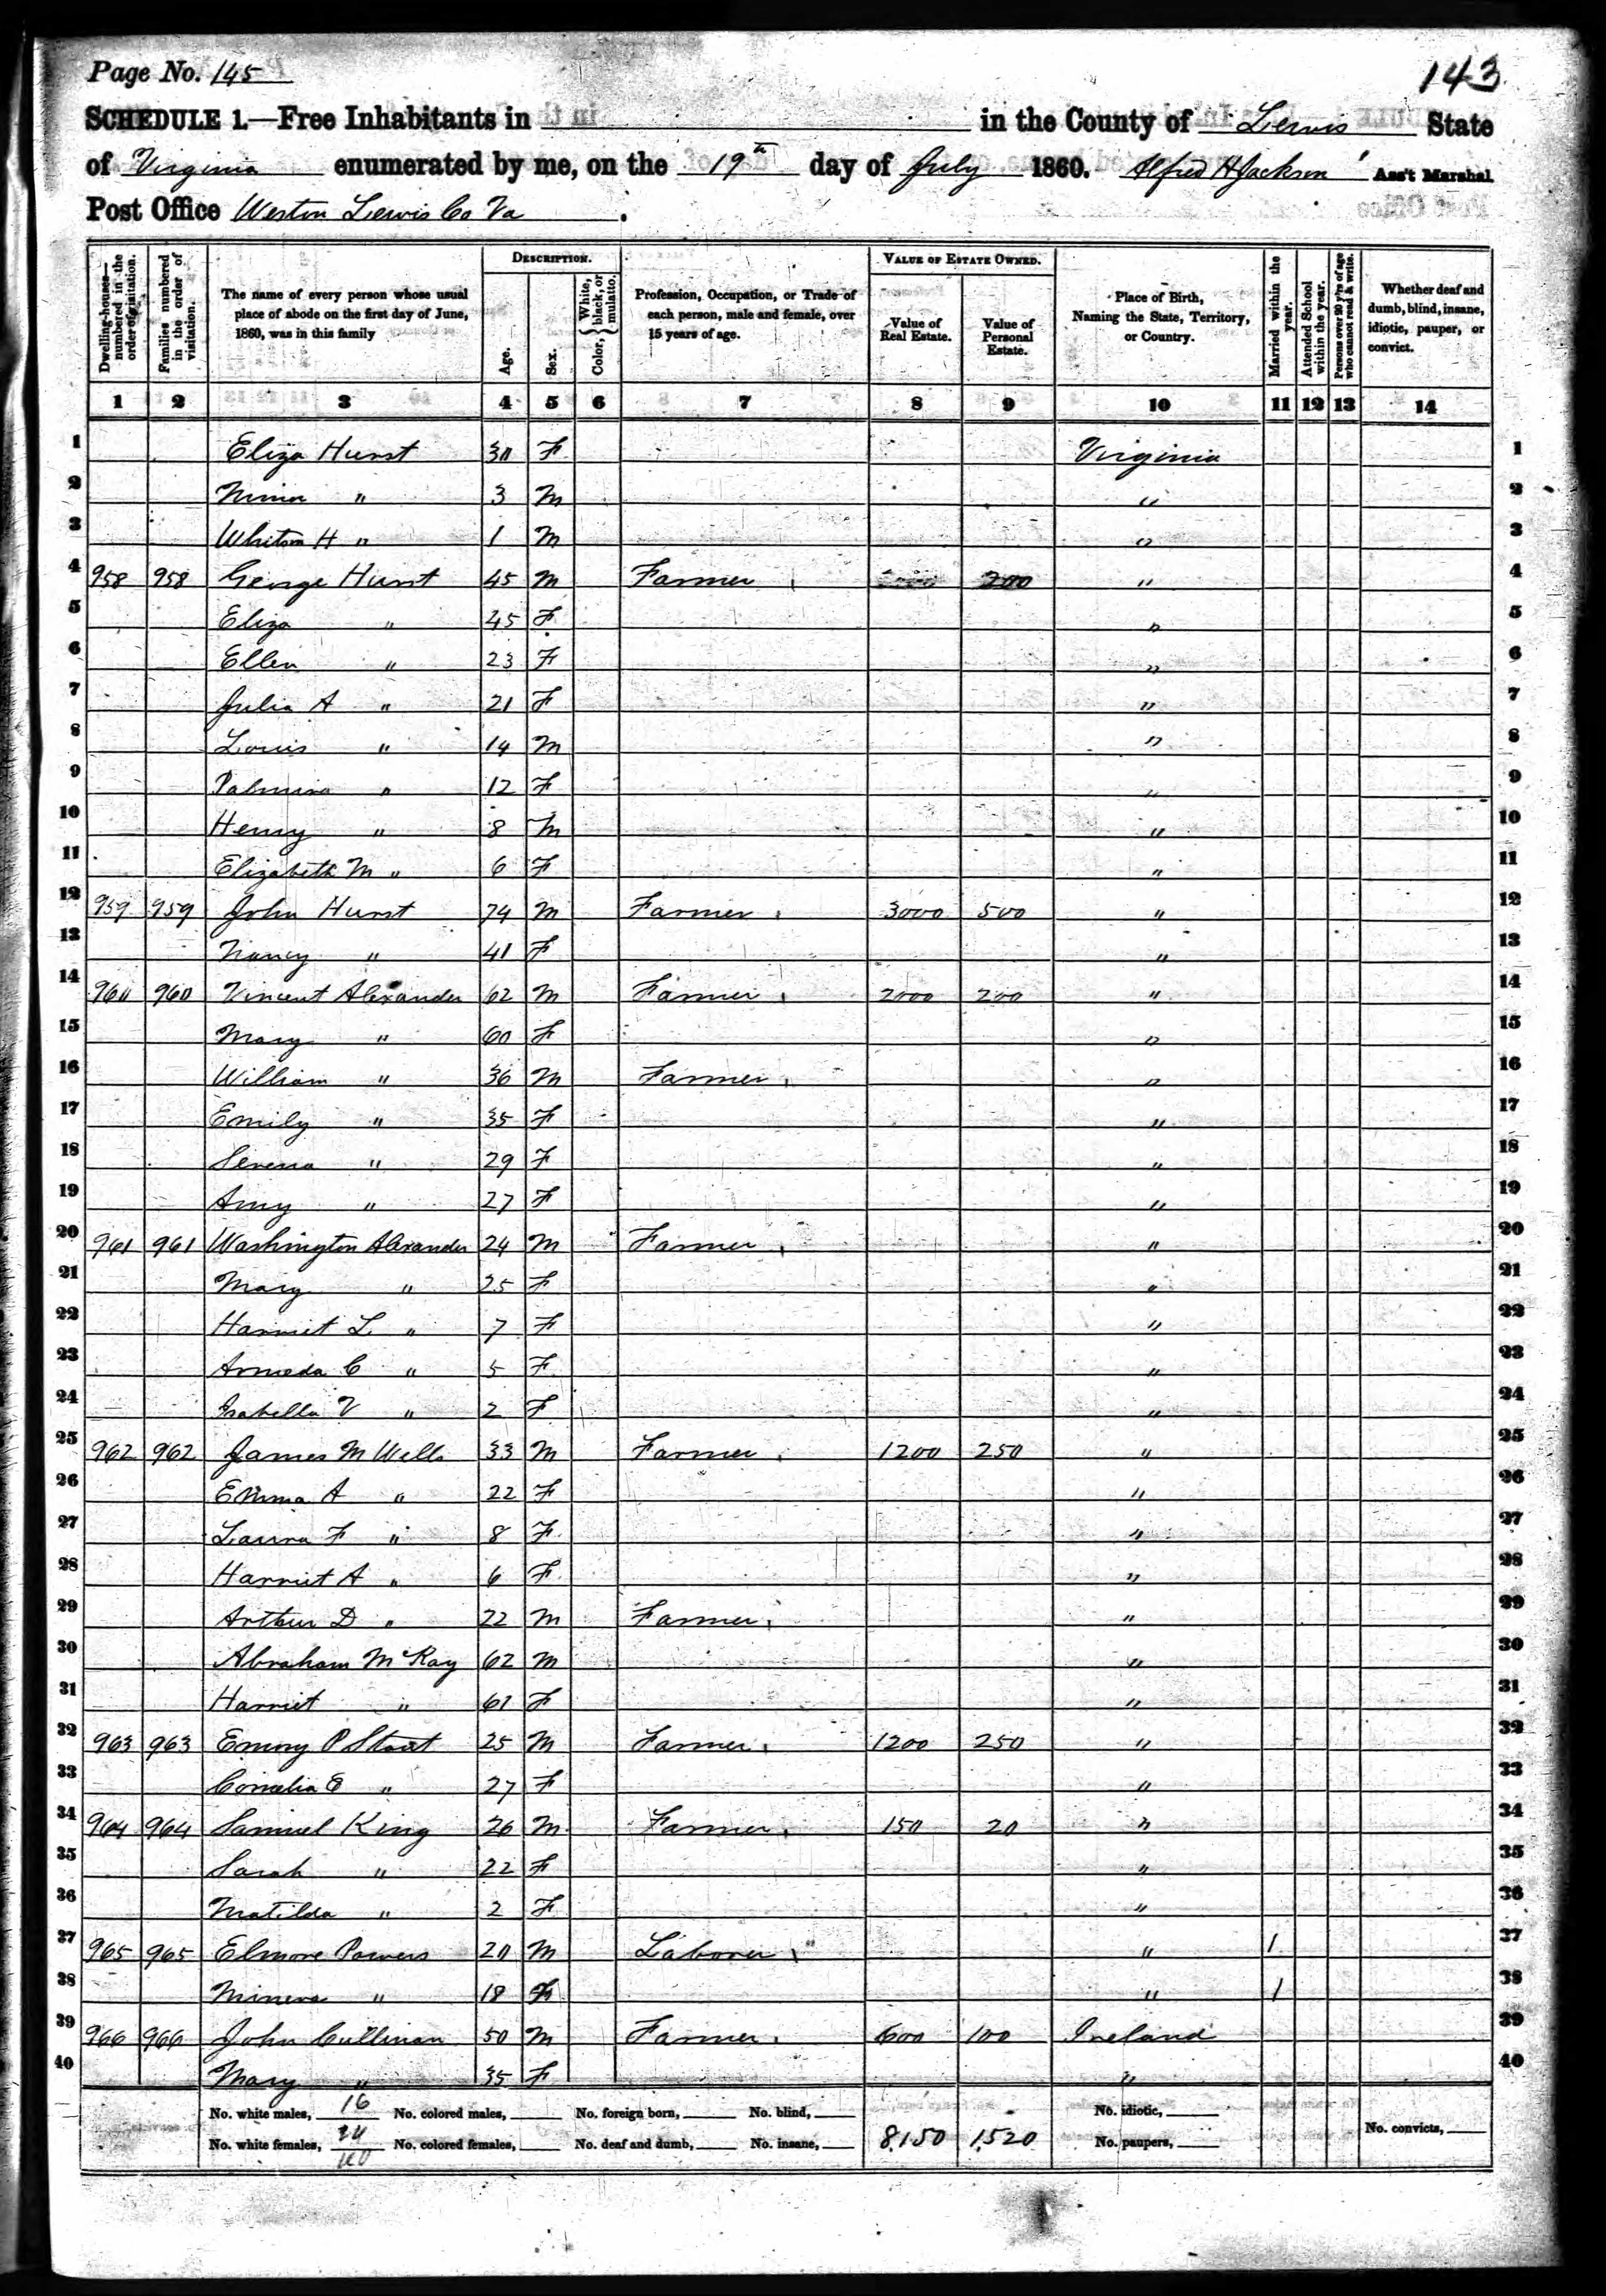 Page No. 145
143
SCHEDULE 1.—Free Inhabitants in in the County of Lewis State
of Virginia enumerated by me, on the 19th day of July 1860. Alfred H Jackson Ass't Marshal
Post Office Weston Lewis Co Va
Dwelling-houses—numbered in the order of visitation.
Families numbered in the order of visitation.
The name of every person whose usual place of abode on the first day of June, 1860, was in this family
DESCRIPTION.
Age.
Sex.
Color, { White, black, or mulatto.
Profession, Occupation, or Trade of each person, male and female, over 15 years of age.
VALUE OF ESTATE OWNED.
Value of Real Estate.
Value of Personal Estate.
Place of Birth, Naming the State, Territory, or Country.
Married within the year.
Attended School within the year.
Persons over 20 y'rs of age who cannot read & write.
Whether deaf and dumb, blind, insane, idiotic, pauper, or convict.
1 2 3 4 5 6 7 8 9 10 11 12 13 14
1 Eliza Hurst 30 F Virginia 1
2 " 3 M " 2
3 H " 1 M " 3
4 958 958 George Hurst 45 M Farmer 200 " 4
5 Eliza " 45 F " 5
6 Ellen " 23 F " 6
7 Julia A " 21 F " 7
8 Louis " 14 M " 8
9 Palmira " 12 F " 9
10 Henry " 8 M " 10
11 Elizabeth M " 6 F " 11
12 959 959 John Hurst 74 M Farmer 3000 500 " 12
13 Nancy " 41 F " 13
14 960 960 Vincent Alexander 62 M Farmer 2000 200 " 14
15 Mary " 60 F " 15
16 William " 36 M Farmer " 16
17 Emily " 35 F " 17
18 Serena " 29 F " 18
19 Amy " 27 F " 19
20 961 961 Washington Alexander 24 M Farmer " 20
21 Mary " 25 F " 21
22 Harriet L " 7 F " 22
23 Armeda C " 5 F " 23
24 Isabella V " 2 F " 24
25 962 962 James M Wells 33 M Farmer 1200 250 " 25
26 Emma A " 22 F " 26
27 Laura F " 8 F " 27
28 Harriet A " 6 F " 28
29 Arthur D " 22 M Farmer " 29
30 Abraham McKay 62 M " 30
31 Harriet " 61 F " 31
32 963 963 Emory P Stout 25 M Farmer 1200 250 " 32
33 Cornelia E " 27 F " 33
34 964 964 Samuel King 26 M Farmer 150 20 " 34
35 Sarah " 22 F " 35
36 Matilda " 2 F " 36
37 965 965 Elmore Powers 20 M Laborer " 1 37
38 Minerva " 18 F " 1 38
39 966 966 John Cullinan 50 M Farmer 600 100 Ireland 39
40 Mary " 35 F " 40
No. white males, 16 No. colored males, No. foreign born, No. blind, No. idiotic,
No. white females, 24 No. colored females, No. deaf and dumb, No. insane, 8,150 1,520 No. paupers, No. convicts,
40